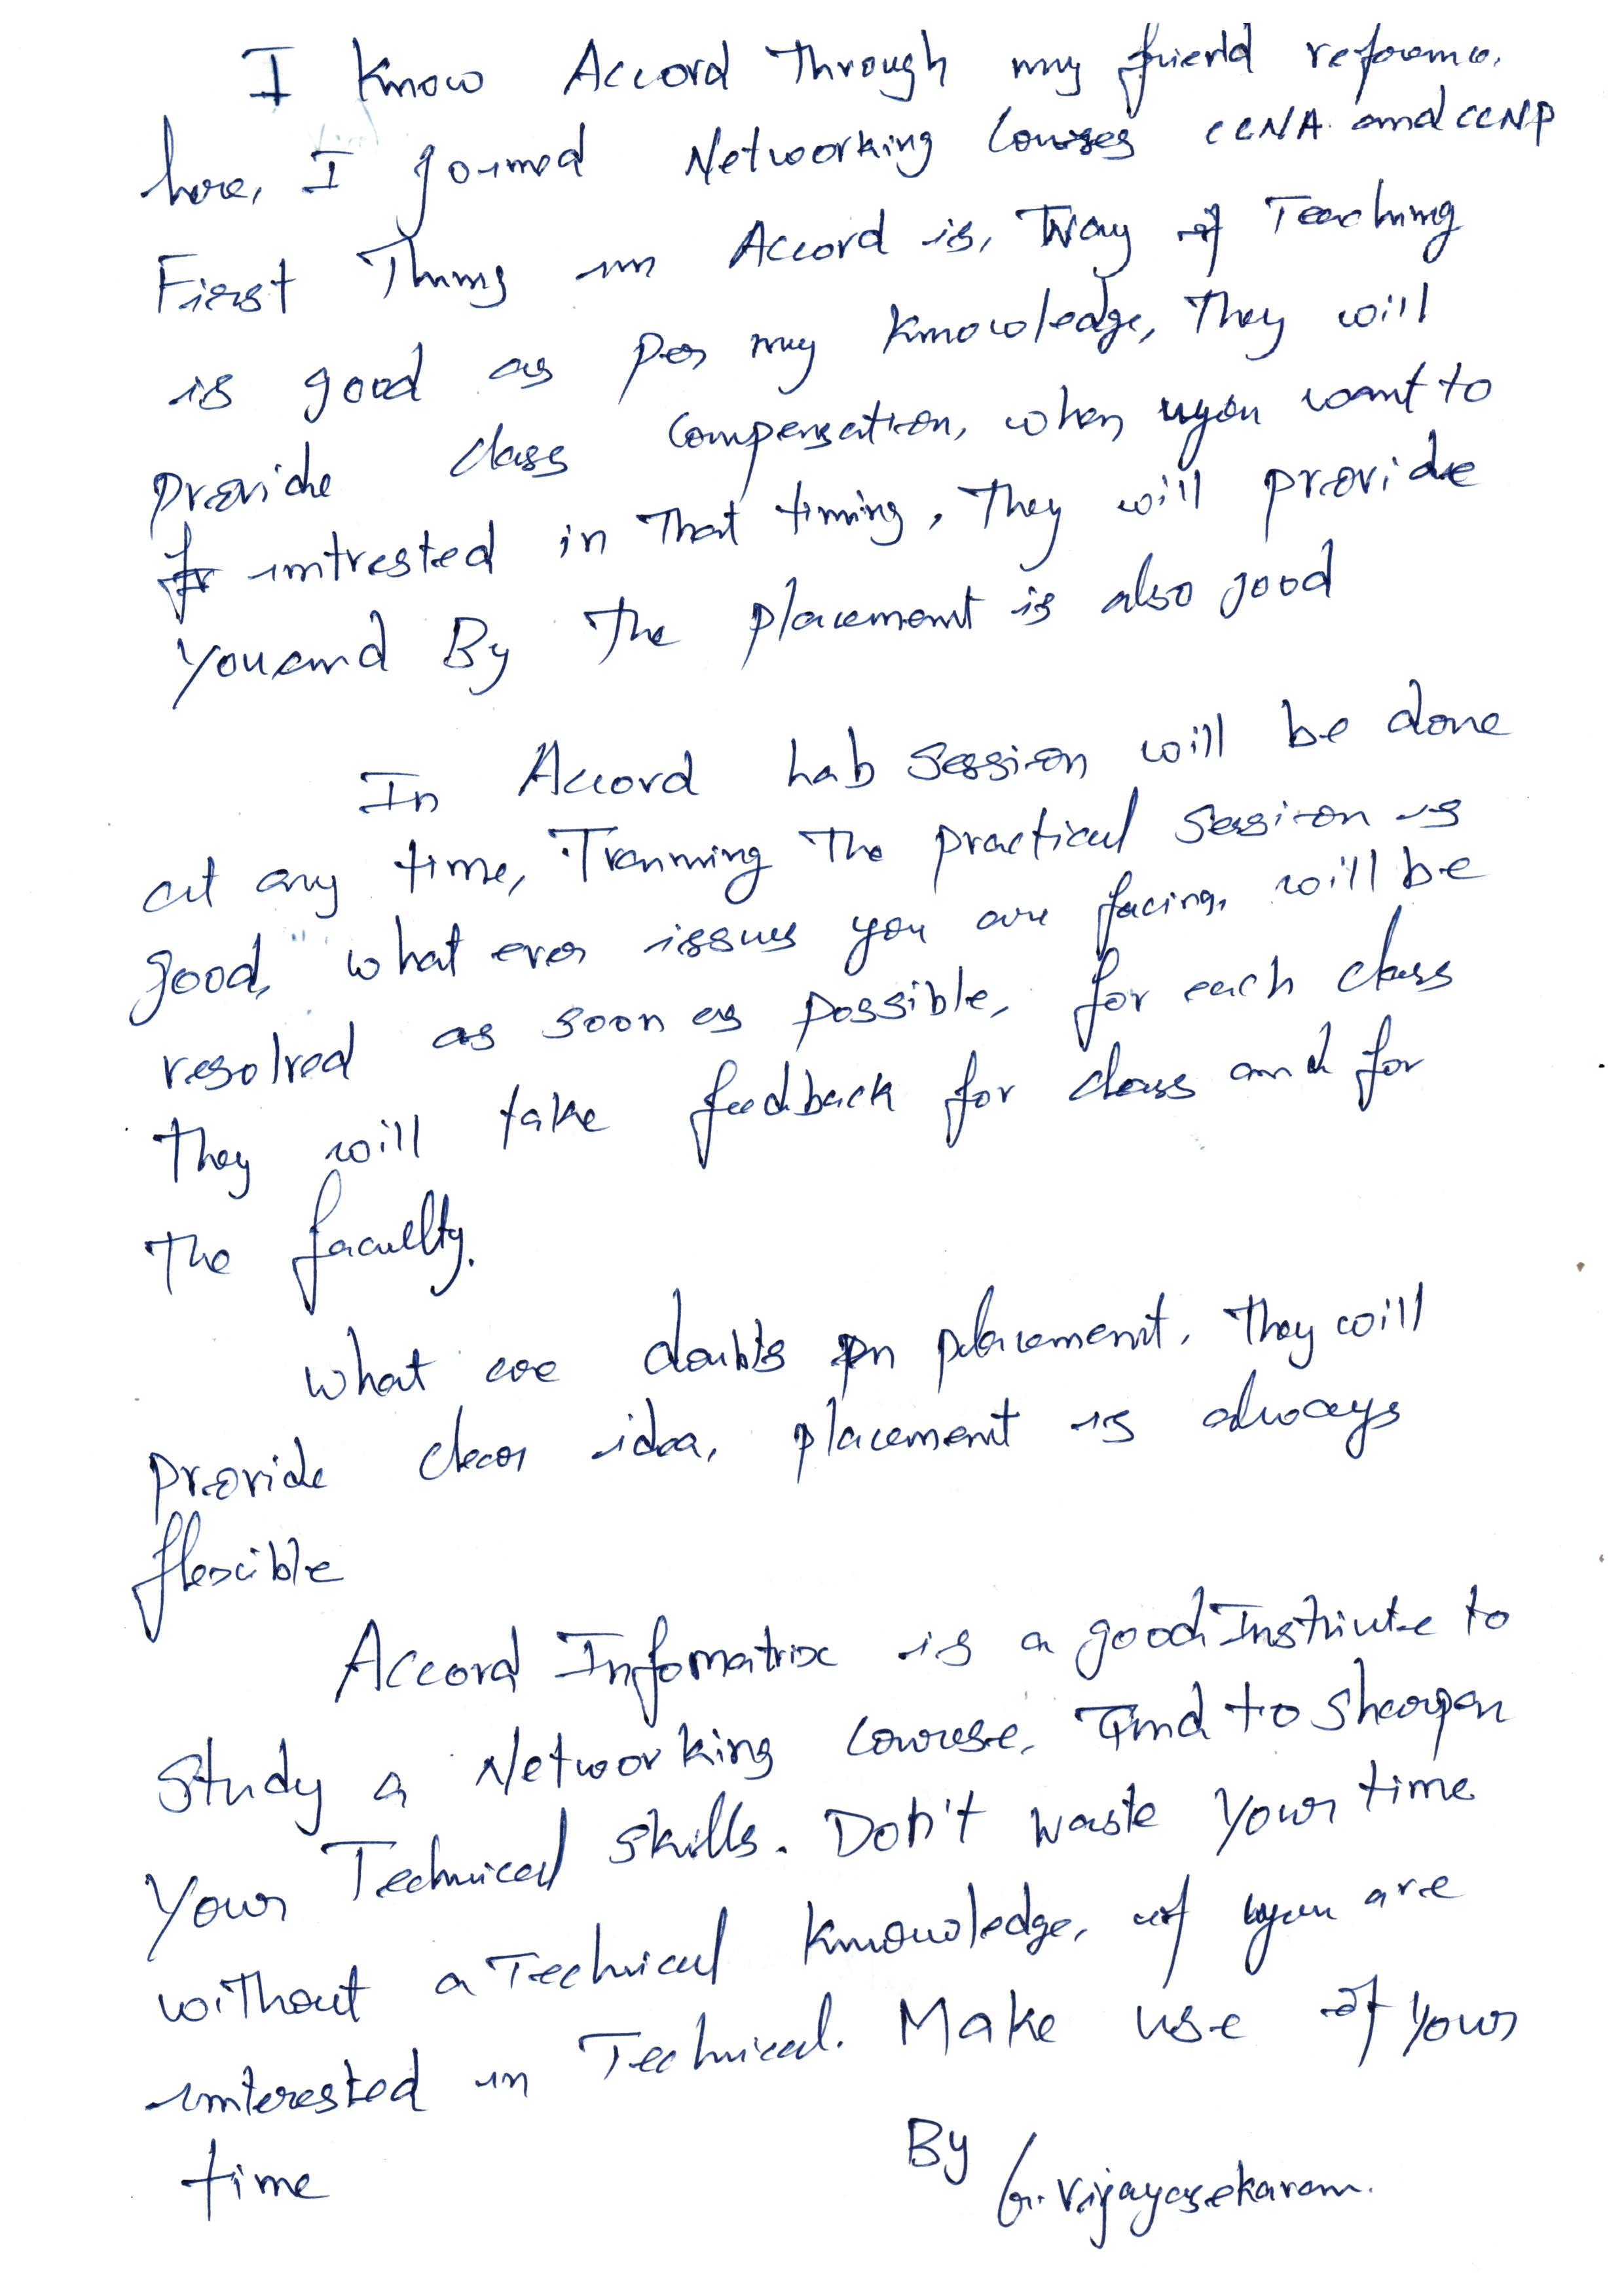 I know Accord Through my friend reference.
here, I joined Networking Courses CCNA and CCNP
First Thing in Accord is, Way of Teaching
is good as per my knowledge, They will
provide class compensation, when you want to
intrested in That timing, They will provide
you and By The placement is also good
In Accord lab session will be done
at any time, Tranning The practical session is
good, what ever issues you are facing, will be
resolved as soon as possible, for each class
They will take feedback for class and for
The faculty.
What are doubts in placement, They will
provide clear idea, placement is always
flexcible
Accord Infomatrix is a good Institute to
study a Networking course, And to sharpen
your Technical skills. Don't waste your time
without a Technical knowledge, if you are
interested in Technical. Make use of your
time
By G. Vijayasekaram.